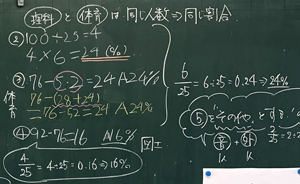 理科と体育は同じ人数⇒同じ割合
② 100÷25=4
4×6=24(%)
③ 76-52=24 A24%
体育
76-(28+24)
=76-52=24 A24%
④ 92-76=16 A16%
4/25=4÷25=0.16⇒16%
図工
6/25=6÷25=0.24⇒24%
⑤ "その他"とする